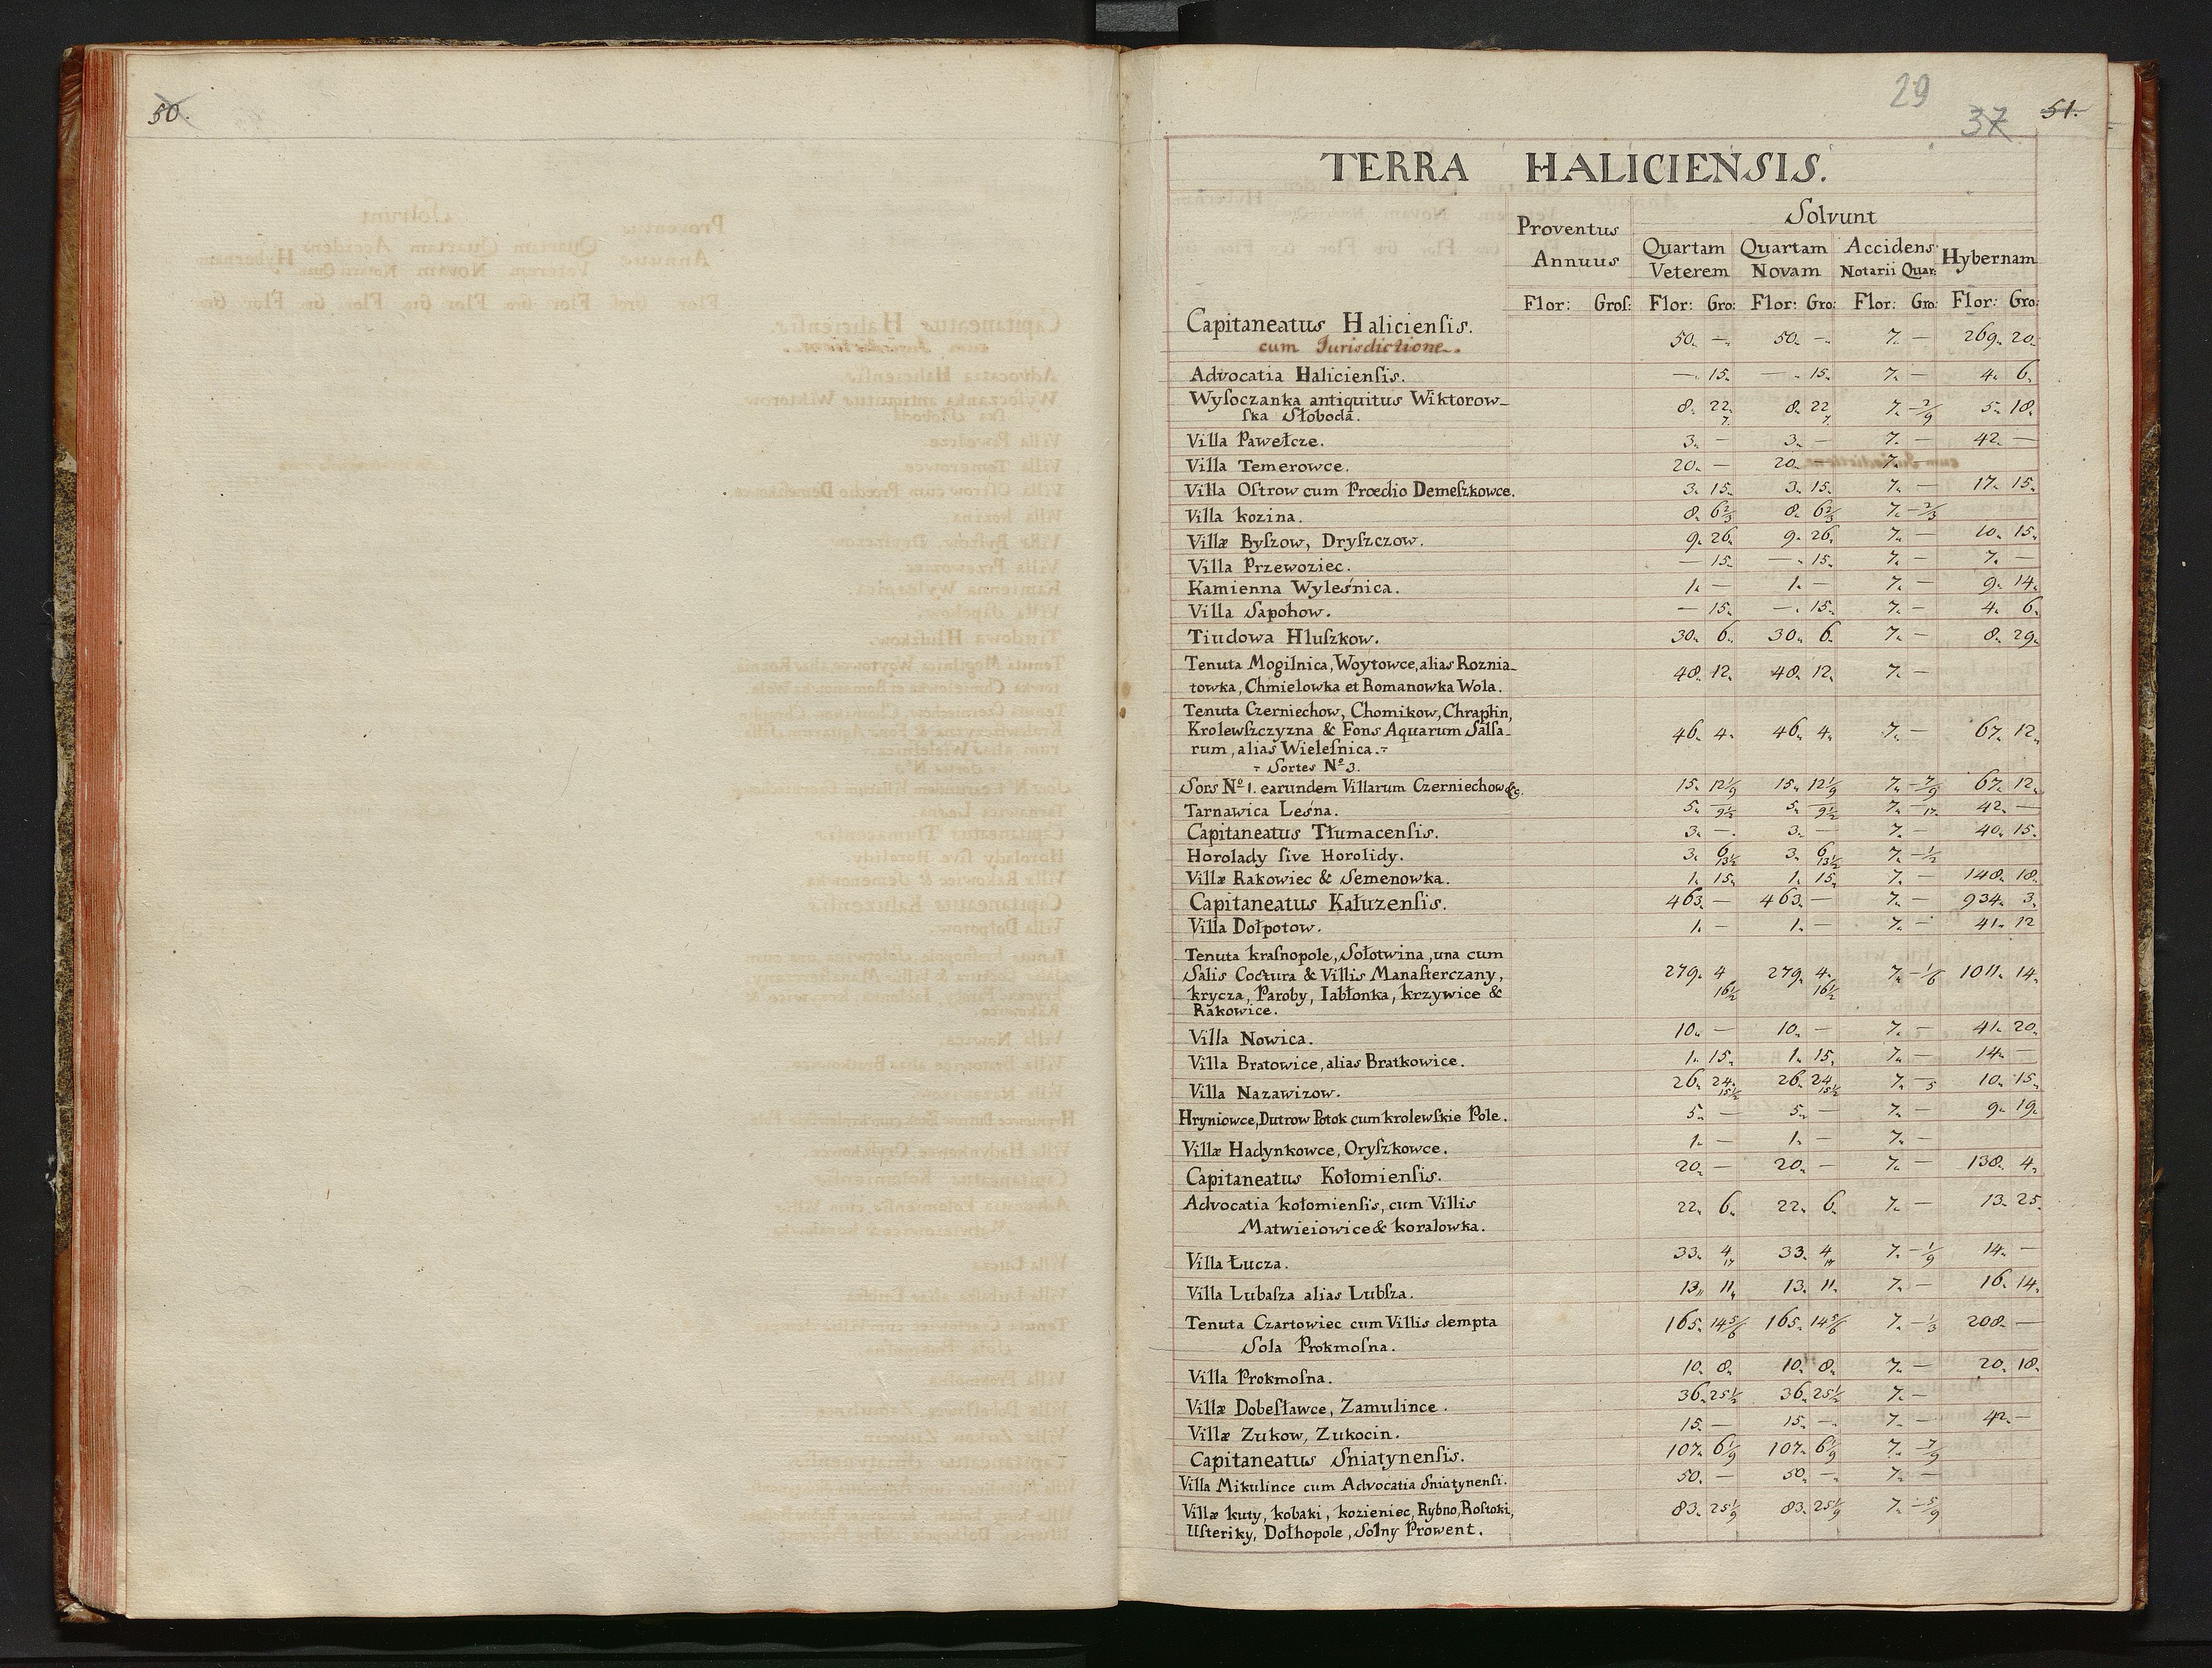 50.
29
37
51.
TERRA HALICIENSIS.
Proventus Annuus
Solvunt
Quartam Veterem Quartam Novam Accidens Notarii Quar: Hybernam
Flor: Groſ: Flor: Gro: Flor: Gro: Flor: Gro: Flor: Gro:
Capitaneatus Halicienſis. 50. — 50. — 7. — 269. 20.
cum Jurisdictione.
Advocatia Halicienſis. — 15. — 15. 7. — 4. 6.
Wyſoczanka antiquitus Wiktorow- 8. 22. 7. 8. 22 7. 7. — 2/9 5. 18.
ſka Słoboda.
Villa Pawełcze. 3. — 3. — 7. — 42. —
Villa Temerowce. 20. — 20. 7. —
Villa Oſtrow cum Prœdio Demeſzkowce. 3. 15. 3. 15. 7. — 17. 15.
Villa kozina. 8. 6 2/3 8. 6 2/3 7. — 2/3
Villæ Byſzow, Dryſzczow. 9. 26. 9. 26. 7. — 10. 15.
Villa Przewoziec. — 15. — 15. 7. — 7. —
Kamienna Wyleśnica. 1. — 1. — 7. — 9. 14.
Villa Sapohow. — 15. — 15. 7. — 4. 6.
Tiudowa Hluſzkow. 30. 6. 30. 6. 7. — 8. 29.
Tenuta Mogilnica, Woytowce, alias Roznia-
towka, Chmielowka et Romanowka Wola. 48. 12. 48. 12. 7. —
Tenuta Czerniechow, Chomikow, Chraplin,
Krolewſzczyzna & Fons Aquarum Salſa- 46. 4. 46. 4. 7. — 67. 12.
rum, alias Wieleſnica.
Sortes No 3.
Sors No 1. earundem Villarum Czerniechow &c. 15. 12 1/9 15. 12 1/9 7. — 7/9 67. 12.
Tarnawica Leśna. 5. — 9 1/2 5. — 9 1/2 7. — 17. 42. —
Capitaneatus Tłumacenſis. 3. — 3. — 7. — 40. 15.
Horolady ſive Horolidy. 3. 6 13 1/2 3. 6 13 1/2 7. — 1/2
Villæ Rakowiec & Semenowka. 1. 15. 1. 15. 7. — 148. 18.
Capitaneatus Kałuzenſis. 463. — 463. — 7. — 934. 3.
Villa Dołpotow. 1. — 1. — 7. — 41. 12
Tenuta kraſnopole, Sołotwina, una cum
Salis Coctura & Villis Manaſterczany, 279. 4 16 1/2 279. 4. 16 1/2 7. — 1/6 1011. 14.
krycza, Paroby, Iabłonka, krzywice &
Rakowice.
Villa Nowica. 10. — 10. — 7. — 41. 20.
Villa Bratowice, alias Bratkowice. 1. 15. 1. 15. 7. — 14. —
Villa Nazawizow. 26. 24. 15 1/2 26. 24 15 1/2 7. — 5 10. 15.
Hryniowce, Dutrow Potok cum krolewſkie Pole. 5. — 5. — 7. — 9. 19.
Villæ Hadynkowce, Oryſzkowce. 1. — 1. — 7. —
Capitaneatus Kołomienſis. 20. — 20. — 7. — 138. 4.
Advocatia kołomienſis, cum Villis 22. 6. 22. 6. 7. — 13. 25.
Matwieiowice & koralowka.
Villa Łucza. 33. 4 17 33. 4 17 7. — 1/9 14. —
Villa Lubaſza alias Lubſza. 13. 11. 13. 11. 7. — 16. 14.
Tenuta Czartowiec cum Villis dempta 165. 14 5/6 165. 14 5/6 7. — 1/3 208. —
Sola Prokmoſna.
Villa Prokmoſna. 10. 8. 10. 8. 7. — 20. 18.
Villæ Dobeſławce, Zamulince. 36. 25 1/2 36. 25 1/2 7. —
Villæ Zukow, Zukocin. 15. — 15. — 7. — 42. —
Capitaneatus Sniatynenſis. 107. 6 1/9 107. 6 1/9 7. — 7/9
Villa Mikulince cum Advocatia Sniatynenſi. 50. — 50. — 7. —
Villæ kuty, kobaki, kozieniec, Rybno, Roſtoki, 83. 25 1/9 83. 25 1/9 7. — 5/9
Uſteriky, Dołhopole, Solny Prowent.